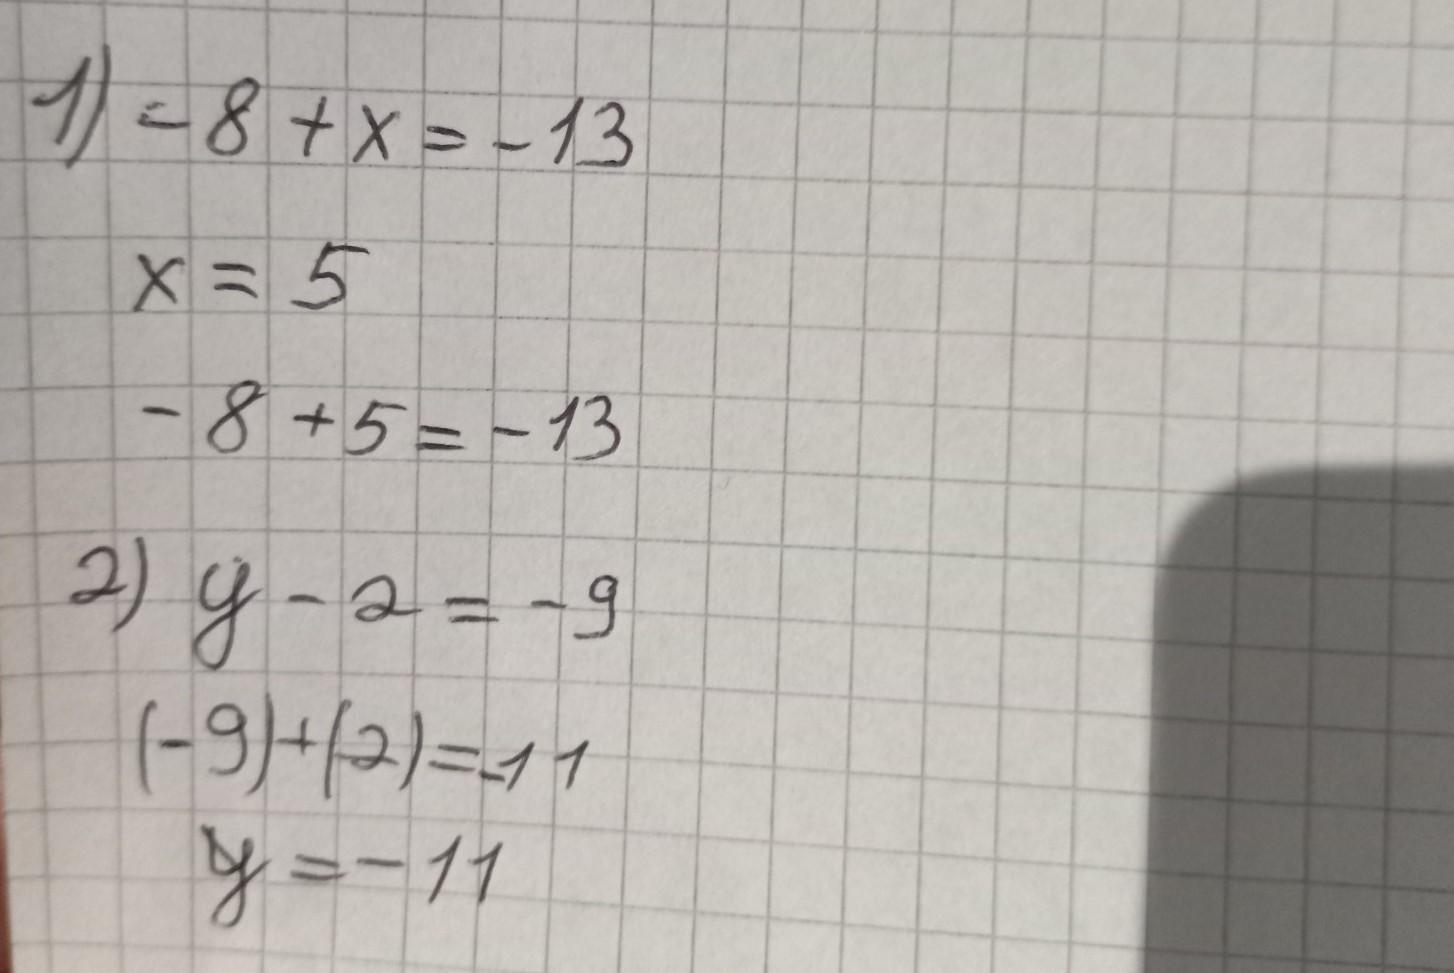 1) -8 + x = -13
x = 5
-8 + 5 = -13
2) y - 2 = -9
(-9)+(2)=-11
y = -11